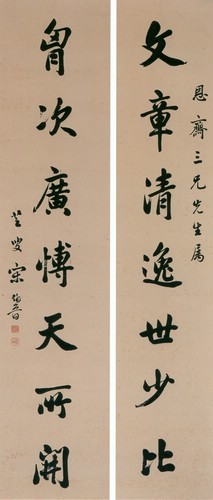 恩齋三兄先生属
文章清逸世少比
胷次廣愽天所開
芝叟宋伯魯